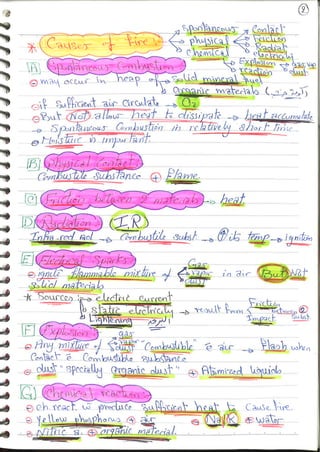 ②
* Causes of fires → Spontaneous → Contact
physical → friction
chemical → Radiat
electricity
Explosion → gas vap
reaction → dust
[A] Spontaneous Combustion
⊙ may occur in heap of → Solid mineral fuel
→ organic materials
⊙ if Sufficient air Circulate → O2
⊙ But Not allow heat to dissipate → heat accumulate
→ Spontaneous Combustion in relatively short time
⊙ Moisture is important
[B] Physical Contact
Combustible Substance ⊕ Flame
[C] friction between 2 materials → heat
[D] Radiation (IR)
Infra-red Rad → Combustible subst → ↑ its temp → Ignition
[E] Electrical Sparks
⊙ ignite flammable mixture of Gas
Vapor in air But Not
dust
Solid materials
* Sources → electric current
→ static electricity → result from Friction
→ Lightening Impact
[F] Explosion
⊙ Any mixture of Gas
dust Combustible & air → Flash when
Contact & Combustible substance
⊙ dust "specially organic dust" ⊕ Atomized liquids
[G] Chemical reactions
⊙ ch. react. → produce Sufficient heat to Cause fire
⊙ Yellow phosphorus ⊕ air ⊙ Na/K ⊕ water
⊙ Nitric a. ⊕ organic material